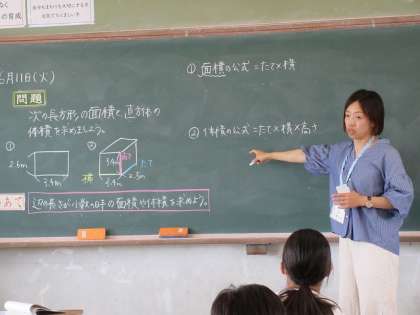 の育成
6月11日(火)
問題
次の長方形の面積と、直方体の
体積を求めましょう。
①
2.5m
3.4m
②
たて
横
めあて
辺の長さが小数の時の面積や体積を求めよう。
①面積の公式=たて×横
②体積の公式=たて×横×高さ